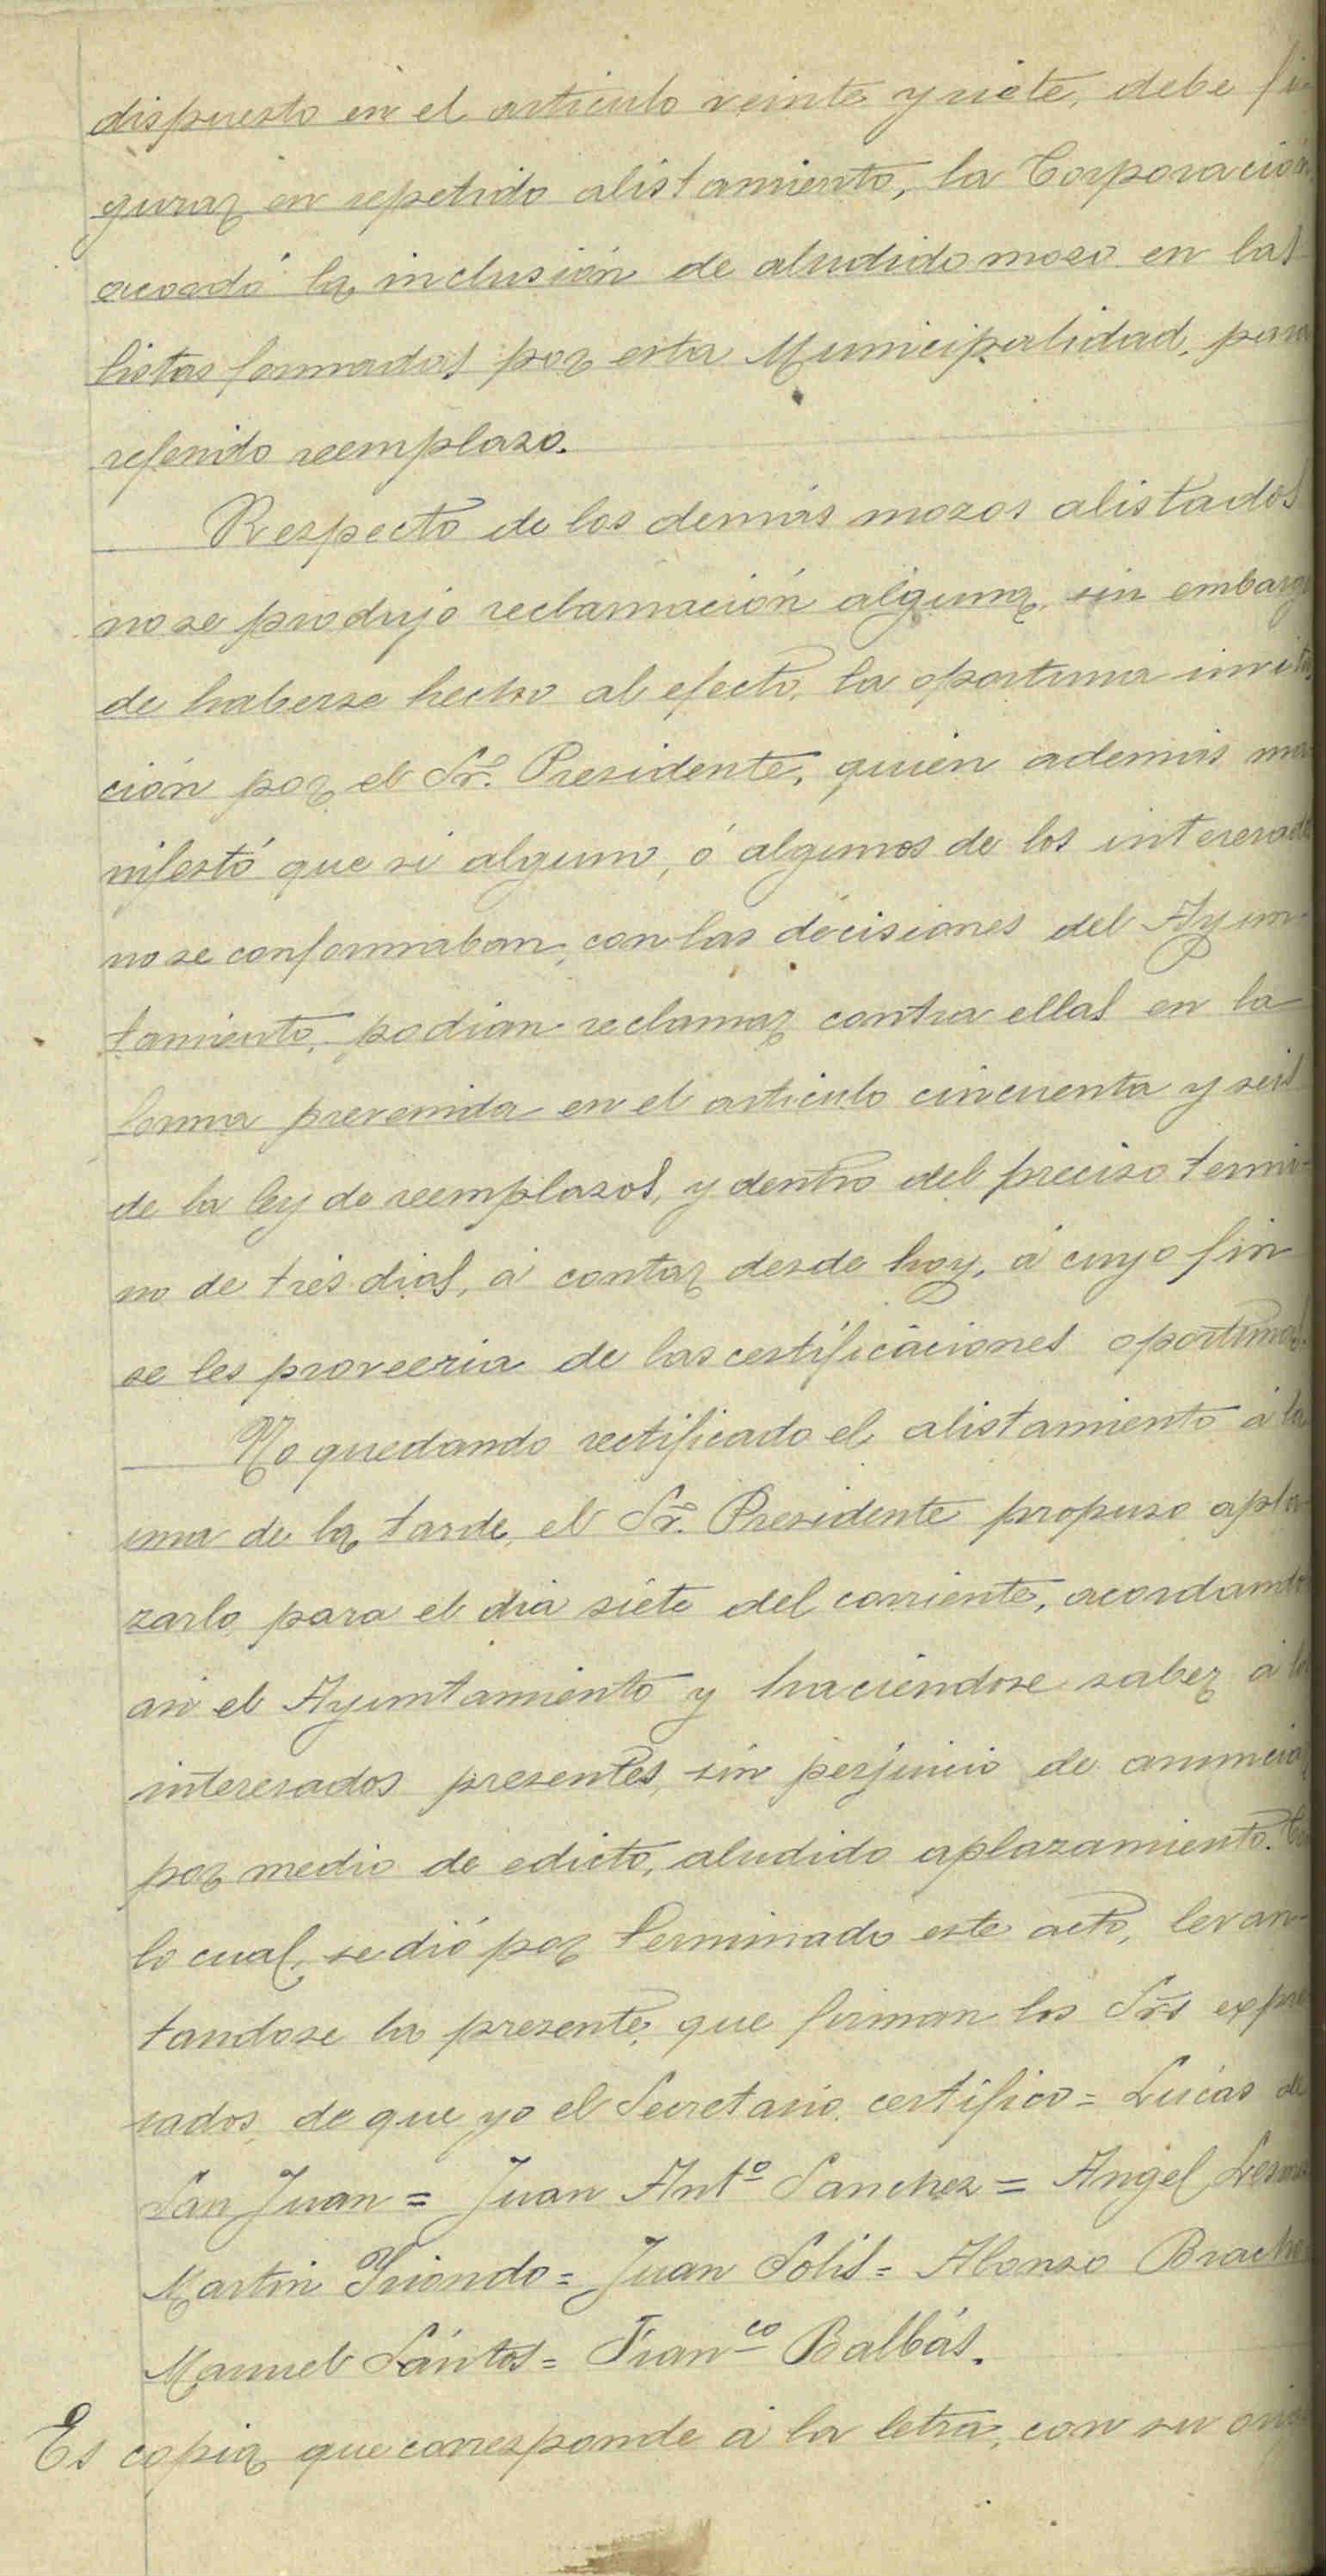 dispuesto en el articulo veinte y siete, debe fi-
gurar en repetido alistamiento, la Corporación
acordó la inclusión de aludido mozo en las
listas formadas por esta Municipalidad, para
referido reemplazo.
Respecto de los demás mozos alistados
no se produjo reclamación alguna, sin embargo
de haberse hecho al efecto, la oportuna invita
ción por el Sr. Presidente, quien además ma
nifestó que si alguno, ó algunos de los interesados
no se conformaban, con las decisiones del Ayun-
tamiento, podian reclamar contra ellas en la
forma prevenida en el articulo cincuenta y seis
de la ley de reemplazos, y dentro del preciso termi-
no de tres dias, á contar desde hoy, á cuyo fin
se les proveeria de las certificaciones oportunas.
No quedando rectificado el alistamiento á la
una de la tarde, el Sr. Presidente propuso apla-
zarlo para el dia siete del corriente, acordando
asi el Ayuntamiento y haciéndose saber á los
interesados presentes, sin perjuicio de anunciar
por medio de edicto, aludido aplazamiento. Con
lo cual, se dió por terminado este acto, levan-
tandose la presente, que firman los Srs expre
sados, de que yo el Secretario, certifico = Lucas de
San Juan = Juan Antº Sanchez = Angel
Martin Iriondo = Juan Solis = Alonso
Manuel Sántos = Franco Balbás.
Es copia que corresponde á la letra, con su